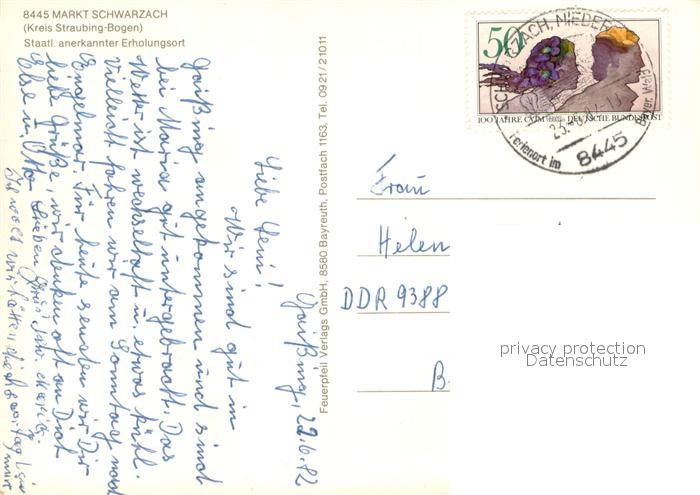 8445 MARKT SCHWARZACH
(Kreis Straubing-Bogen)
Staatl. anerkannter Erholungsort
Gaißing, 22.6.82
Liebe Leni!
Wir sind gut in
Gaißing angekommen und sind
bei Maria gut untergebracht. Das
Wetter ist wechselhaft u. etwas kühl.
Vielleicht fahren wir am Sonntag nach
Engelmar. Für heute senden wir Dir
liebe Grüße, wir denken oft an Dich
Else u. Otto
Lieben Gruß
Feuerpfeil Verlags GmbH, 8580 Bayreuth, Postfach 1163, Tel. 0921/21011
50
100 JAHRE CVJM DEUTSCHE BUNDESPOST
SCHWARZACH, NIEDER
Ferienort im Bayer. Wald
8445
Frau
Helen
DDR 9388
B.
privacy protection
Datenschutz